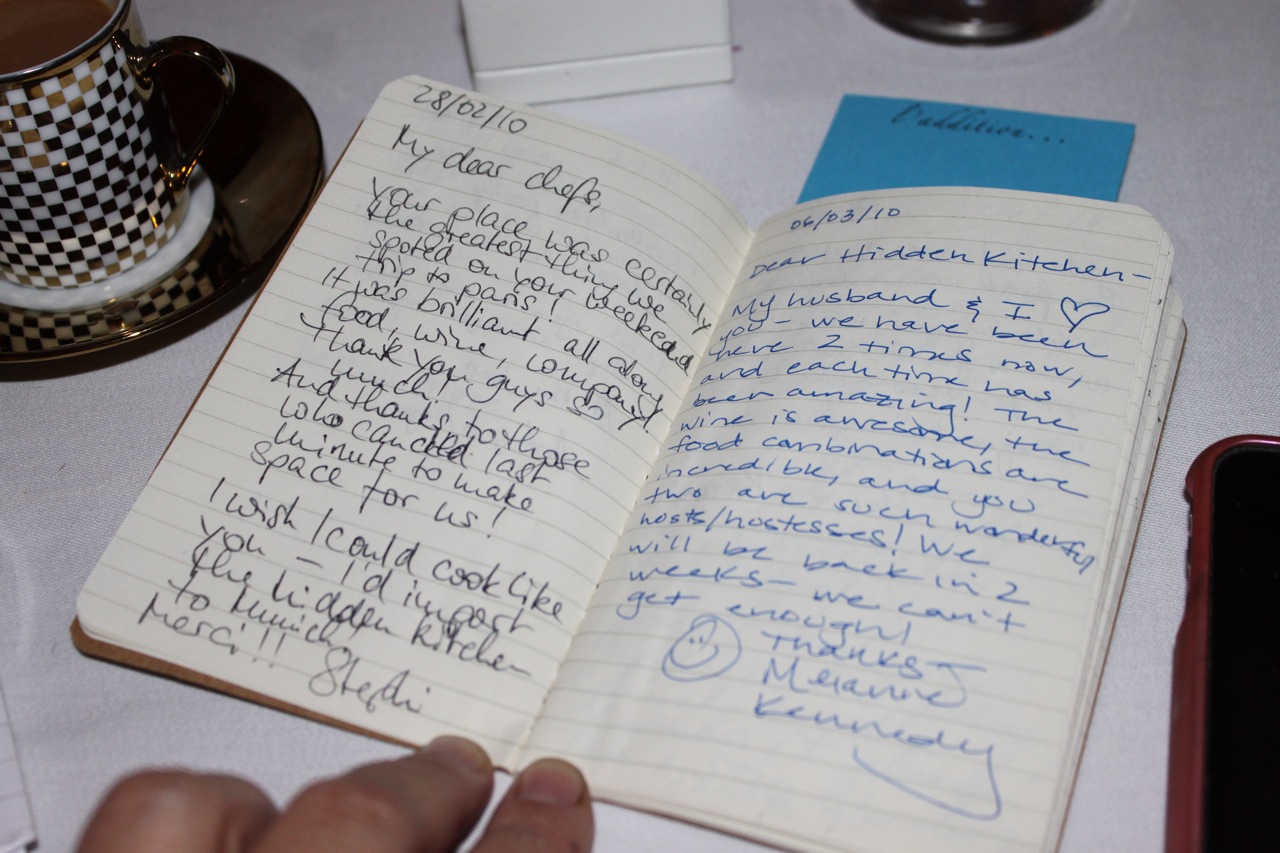 28/02/10
My dear chefs,
your place was certainly
the greatest thing we
spoted on your weekeend
trip to paris!
It was brilliant all along
food, wine, company!
Thank you guys so
much!
And thanks to those
who canceled last
minute to make
space for us!
I wish I could cook like
you – I'd import
the hidden kitchen
to Munich
Merci!! Stephi
l'addition...
06/03/10
Dear Hidden Kitchen-
My husband & I ♡
you - we have been
here 2 times now,
and each time has
been amazing! The
wine is awesome, the
food combinations are
incredible, and you
two are such wonderful
hosts/hostesses! We
will be back in 2
weeks- we can't
get enough!
Thanks-
Melanie
Kennedy